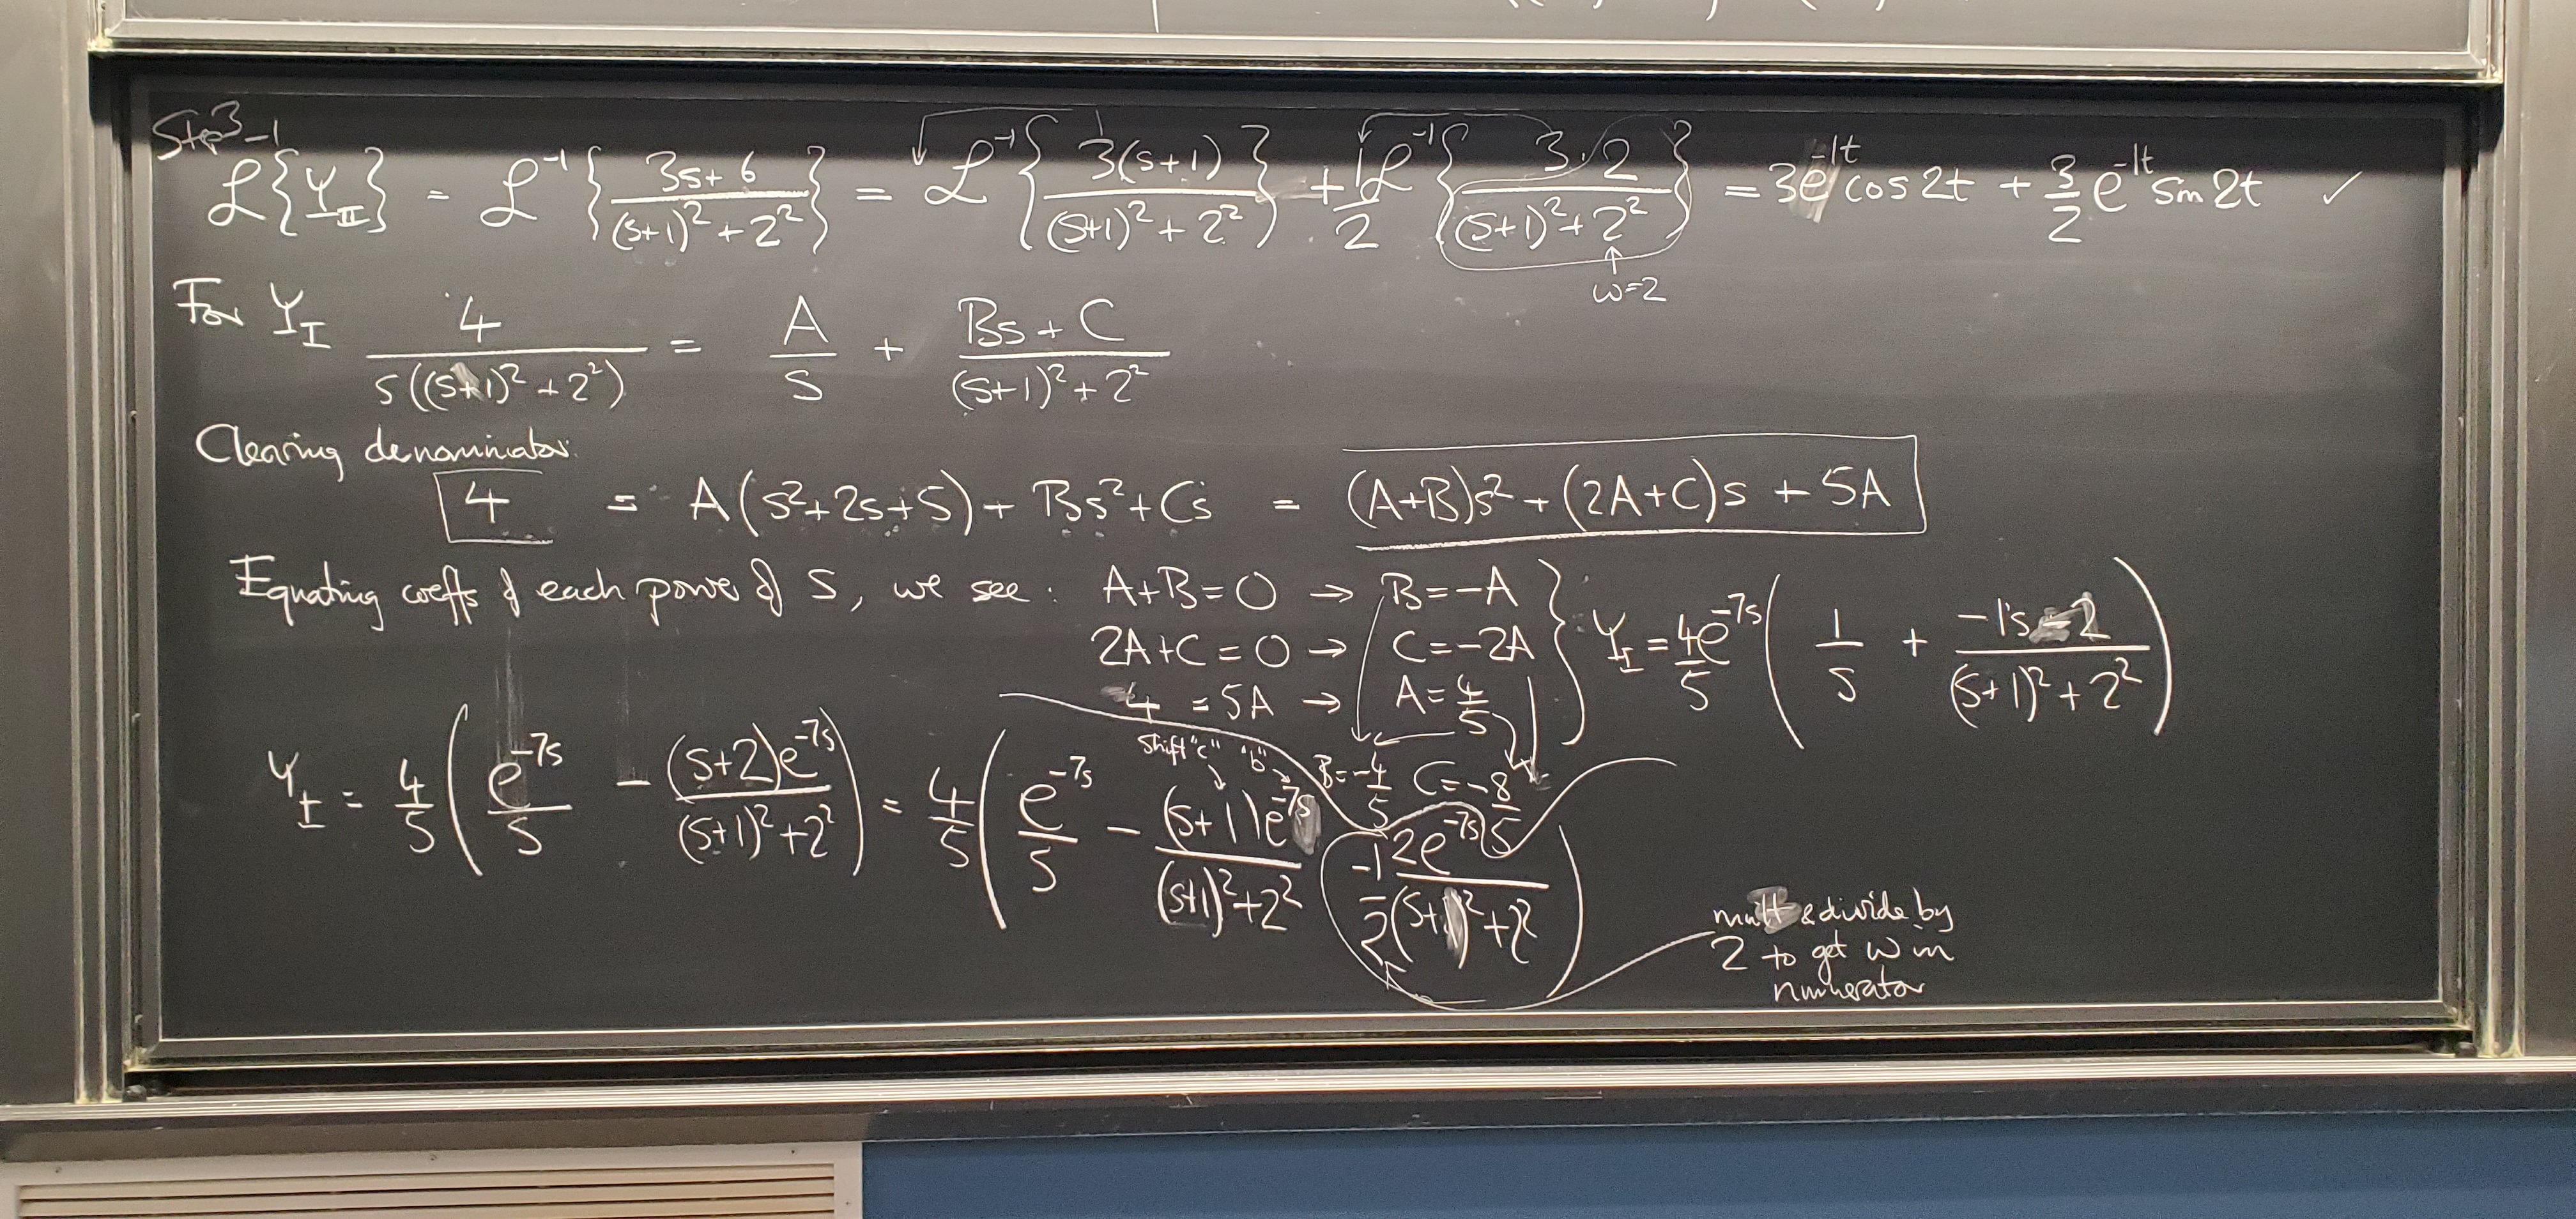 Step 3
ℒ⁻¹{Y_II} = ℒ⁻¹{ (3s+6)/((s+1)²+2²) } = ℒ⁻¹{ 3(s+1)/((s+1)²+2²) } + 1/2 ℒ⁻¹{ 3·2/((s+1)²+2²) } = 3e^(-1t) cos2t + 3/2 e^(-1t) sin2t ✓
ω=2
For Y_I 4/(s((s+1)²+2²)) = A/s + (Bs+C)/((s+1)²+2²)
Clearing denominator:
4 = A(s²+2s+5) + Bs²+Cs = (A+B)s² + (2A+C)s + 5A
Equating coeffs of each power of s, we see: A+B=0 → B=-A
2A+C=0 → C=-2A
4 = 5A → A=4/5
B=-4/5 C=-8/5
Y_I = 4/5 e^(-7s) ( 1/s + (-1s-2)/((s+1)²+2²) )
shift "c" "b"
Y_I = 4/5 ( e^(-7s)/s - (s+2)e^(-7s)/((s+1)²+2²) ) = 4/5 ( e^(-7s)/s - (s+1)e^(-7s)/((s+1)²+2²) -1/2 2e^(-7s)/((s+1)²+2²) )
mult & divide by
2 to get ω in
numerator